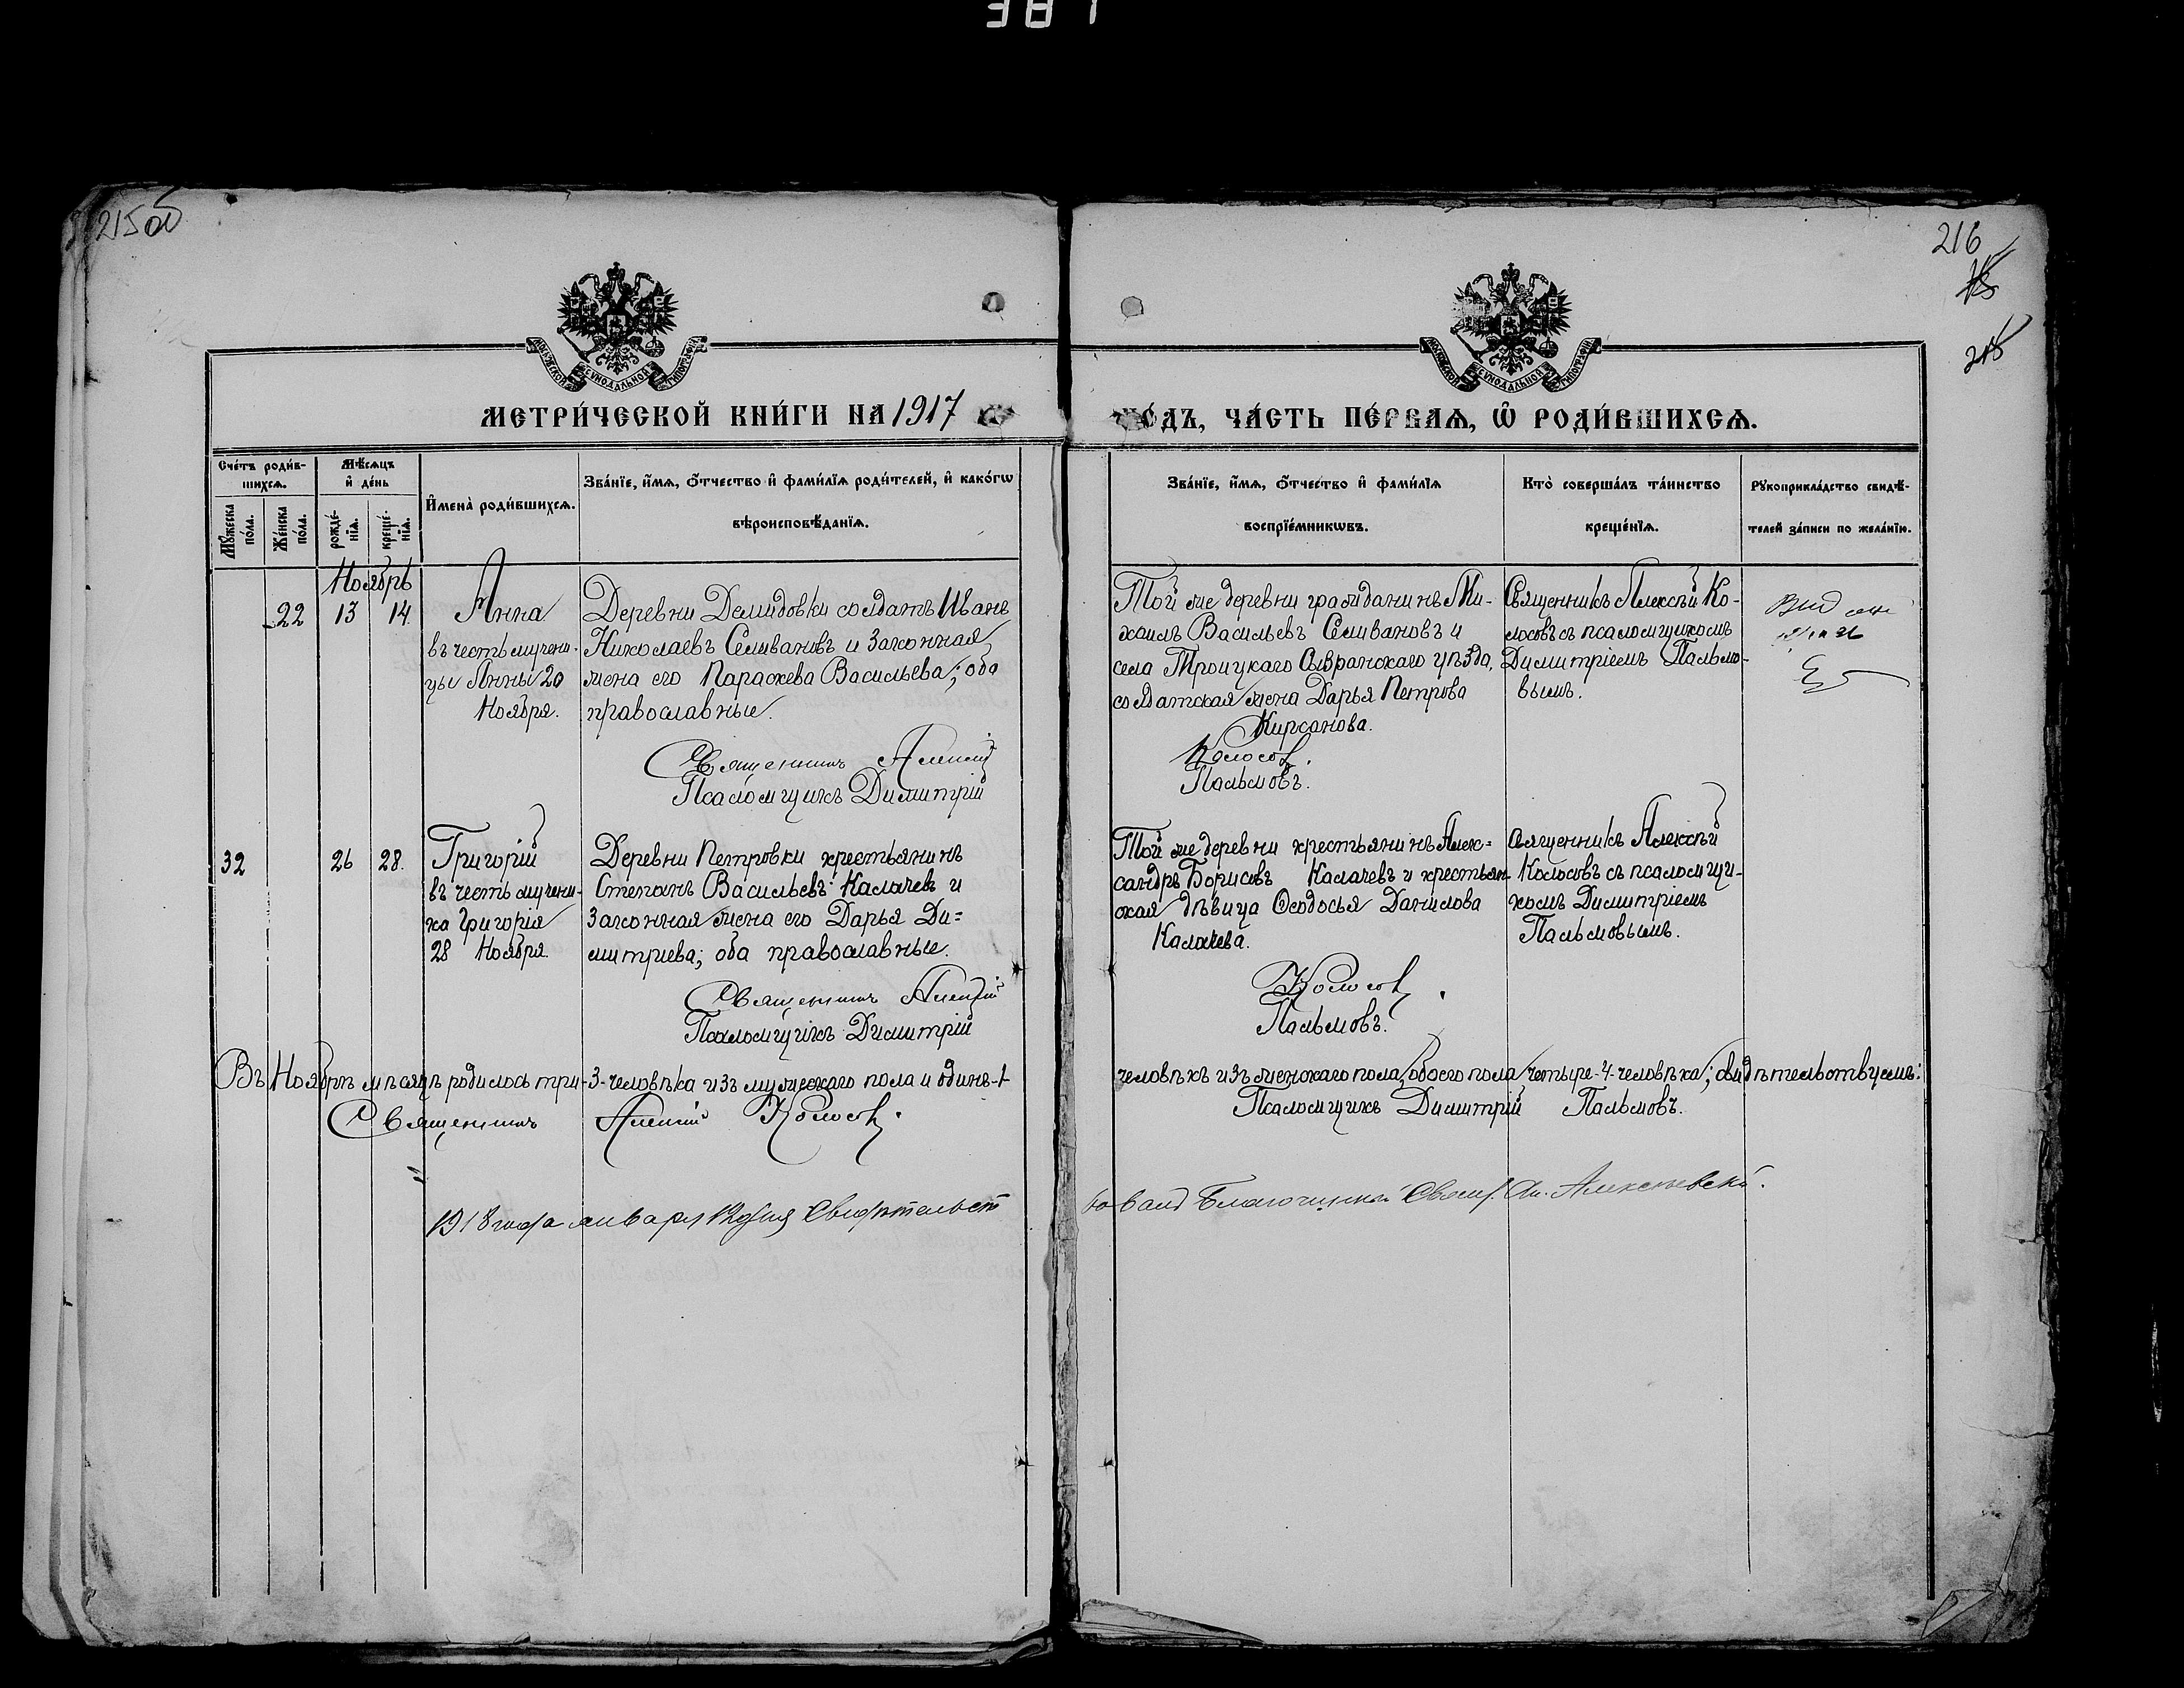 381
215 об
216
215
МОСКОВСКОЙ СУНОДАЛЬНОЙ ТИПОГРАФІИ
МОСКОВСКОЙ СУНОДАЛЬНОЙ ТИПОГРАФІИ
МЕТРИ́ЧЕСКОЙ КНИ́ГИ НА 1917
го́дъ, ча́сть пе́рваѧ, ѡ҆ роди́вшихсѧ.
Сче́тъ роди́в-
шихсѧ.
Мѣ́сѧцъ
и҆ де́нь
Мꙋ́жеска по́ла.
Же́нска по́ла.
рожде́-
нїѧ.
креще́-
нїѧ.
И҆мена̀ роди́вшихсѧ.
Зва́нїе, и҆́мѧ, ѻ҆́тчество и҆ фами́лїѧ роди́телей, и҆ како́гѡ
вѣроисповѣ́данїѧ.
Зва́нїе, и҆́мѧ, ѻ҆́тчество и҆ фами́лїѧ
воспрїе́мникѡвъ.
Кто̀ соверша́лъ та́инство
креще́нїѧ.
Рꙋкоприкла́дство свидѣ́-
телей за́писи по жела́нїю.
Ноябрь
22 13 14.
Анна
въ честь мучени-
цы Анны 20
Ноября.
Деревни Демидовки солдатъ Иванъ
Николаевъ Селивановъ и законная
жена его Параскева Васильева; оба
православные.
Священникъ Алексій
Псаломщикъ Димитрій
Той же деревни гражданинъ Ми-
хаилъ Васильевъ Селивановъ и
села Троицкаго Сызранскаго уѣзда,
солдатская жена Дарья Петрова
Кирсанова.
Колосовъ.
Пальмовъ.
Священникъ Алексѣй Ко-
лосовъ съ псаломщикомъ
Димитріемъ Пальмо-
вымъ.
32 26 28.
Григорій
въ честь мучени-
ка Григорія
28 Ноября
Деревни Петровки крестьянинъ
Степанъ Васильевъ Калачевъ и
законная жена его Дарья Ди=
митриева; оба православные.
Священникъ Алексій
Псаломщикъ Димитрій
Той же деревни крестьянинъ Алек=
сандръ Борисовъ Калачевъ и крестьян-
ская дѣвица Ѳеодосья Данилова
Калачева.
Колосовъ.
Пальмовъ.
Священникъ Алексѣй
Колосовъ съ псаломщи-
комъ Димитріемъ
Пальмовымъ.
Въ Ноябрѣ мѣсяцѣ родилось три-3-человѣка изъ мужескаго пола и одинъ-1-
человѣкъ изъ женскаго пола, обоего пола четыре-4-человѣка; свидѣтельствуемъ:
Священникъ Алексій Колосовъ.
Псаломщикъ Димитрій Пальмовъ.
1918 года января 12 дня Свидѣтельст
вовалъ Благочинный Свящ. Ал. Алексѣевскій.